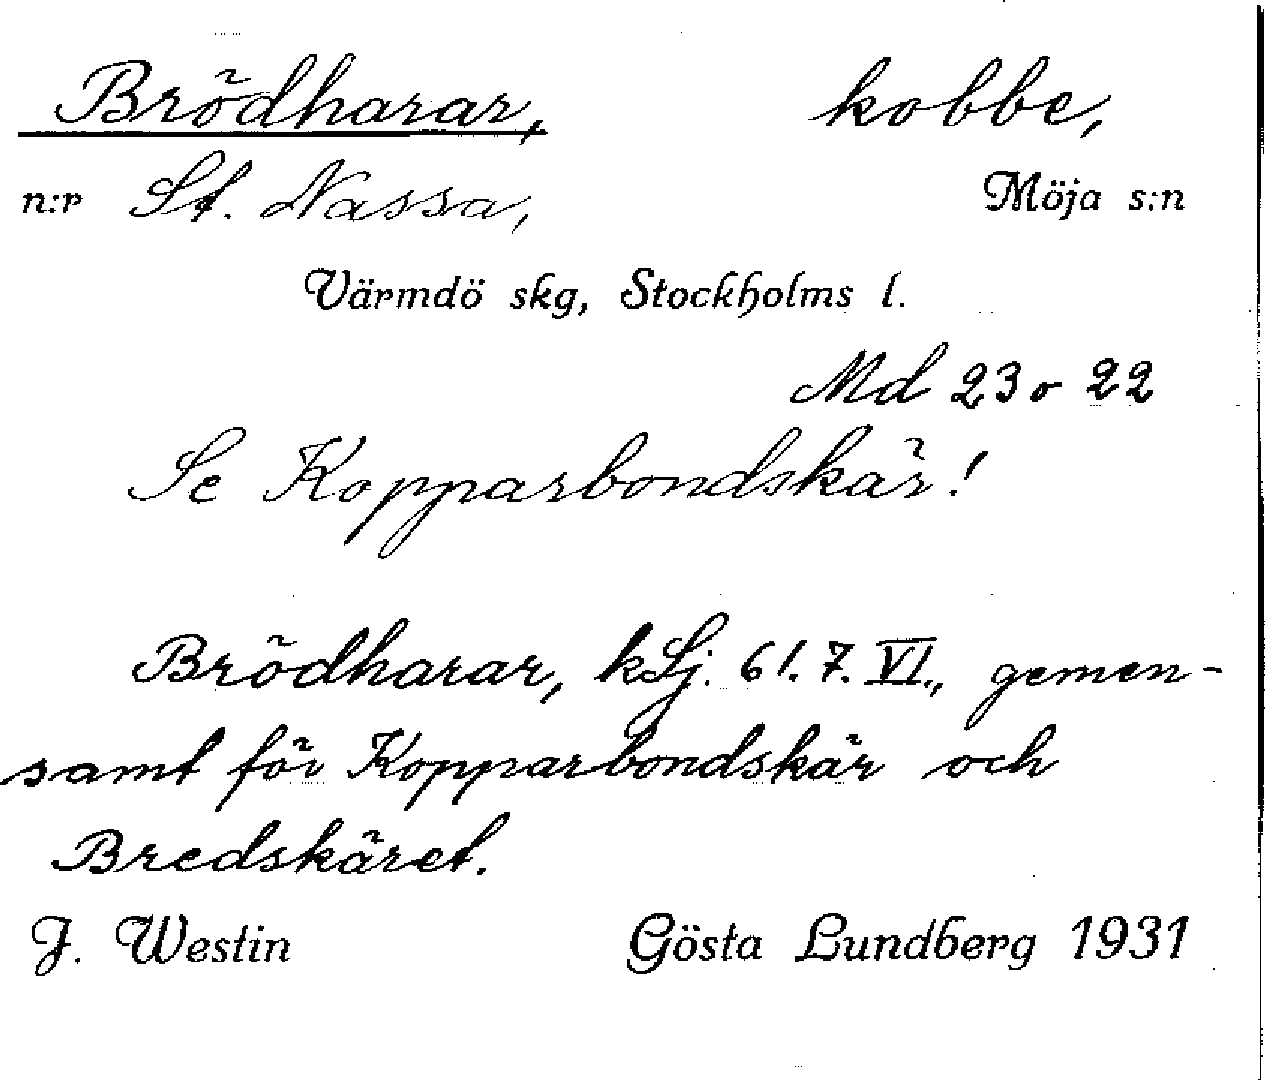 Brödharar, kobbe,
n:r St. Nassa, Möja s:n
Värmdö skg, Stockholms l.
Md 23 o 22
Se Kopparbondskär!
Brödharar, kSj. 61. 7. VI., gemen-
samt för Kopparbondskär och
Bredskäret.
J. Westin Gösta Lundberg 1931